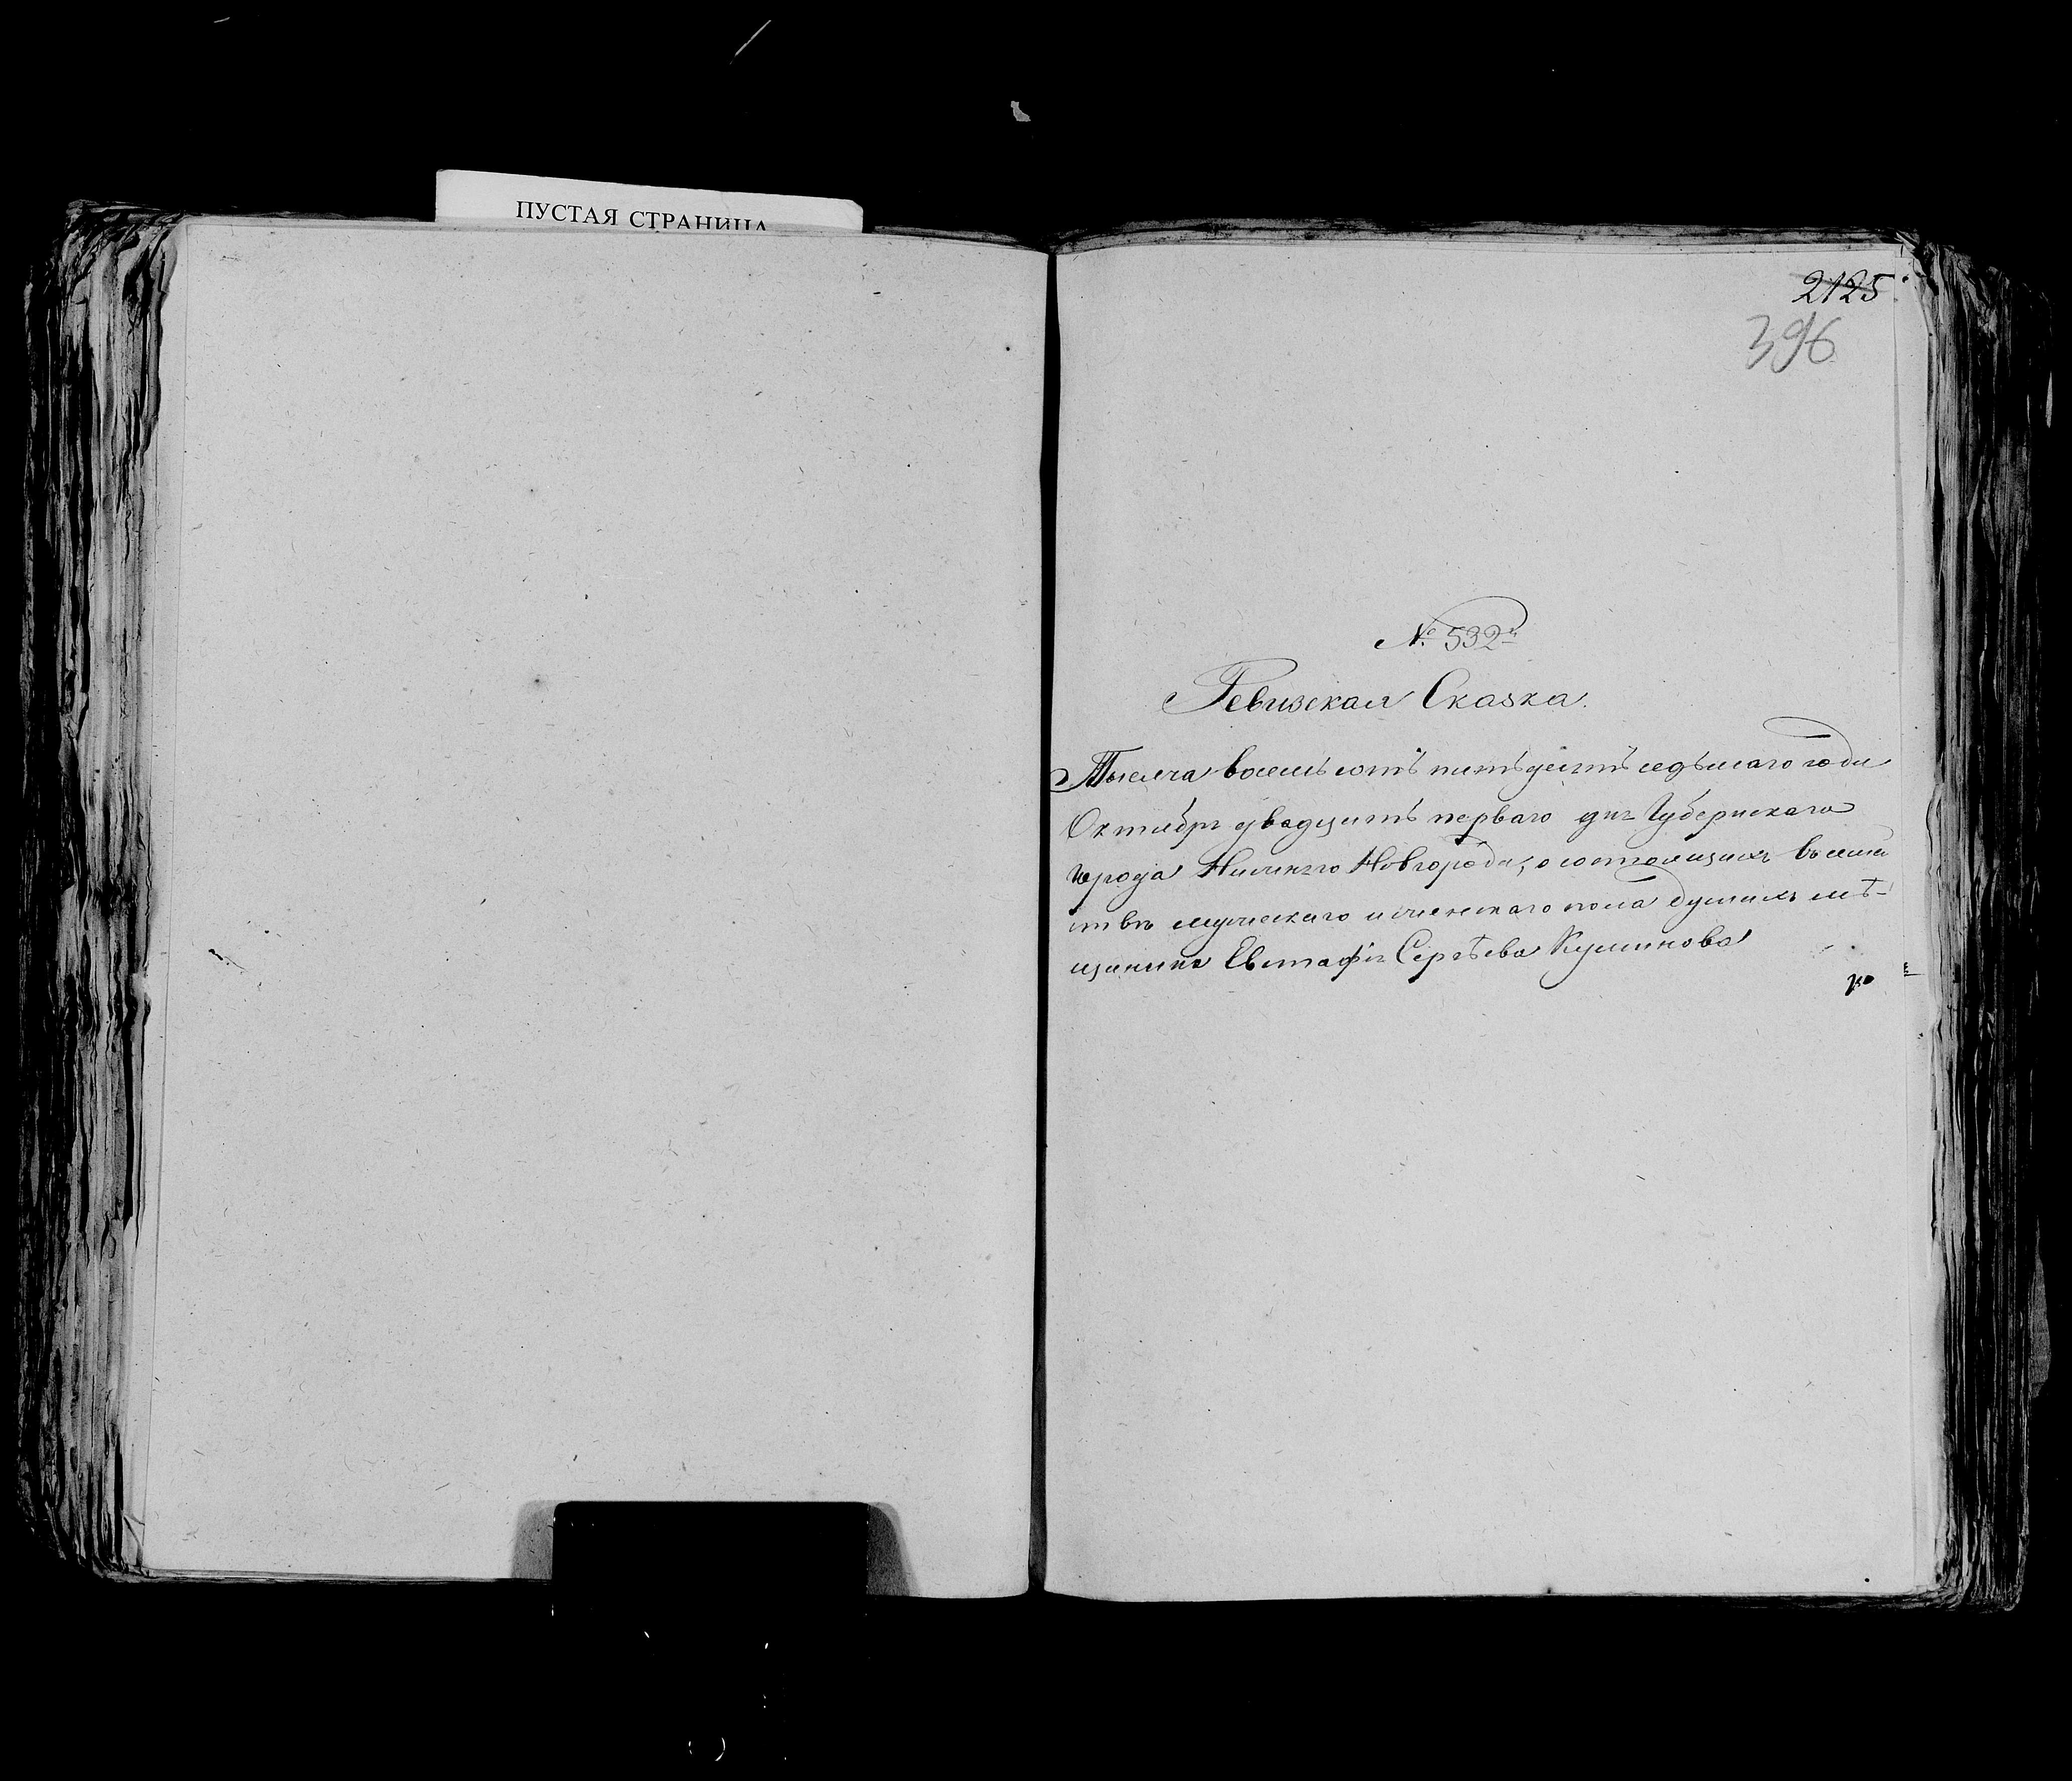 ПУСТАЯ СТРАНИЦА
2125
396
№ 532й
Ревизская Сказка.
Тысяча восемьсотъ пятьдесятъ седьмаго года
Октября двадцать перваго дня Губернскаго
города Нижняго Новгорода, о состоящихъ въ семей
ствѣ мужескаго и женскаго пола душахъ мѣ-
щанина Евстафія Сергѣева Куликова